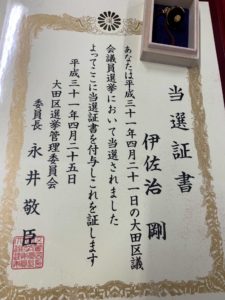 当選証書
伊佐治 剛
あなたは平成三十一年四月二十一日の大田区議
会議員選挙において当選されました
よってここに当選証書を付与しこれを証します
平成三十一年四月二十五日
大田区選挙管理委員会
委員長 永井敬臣